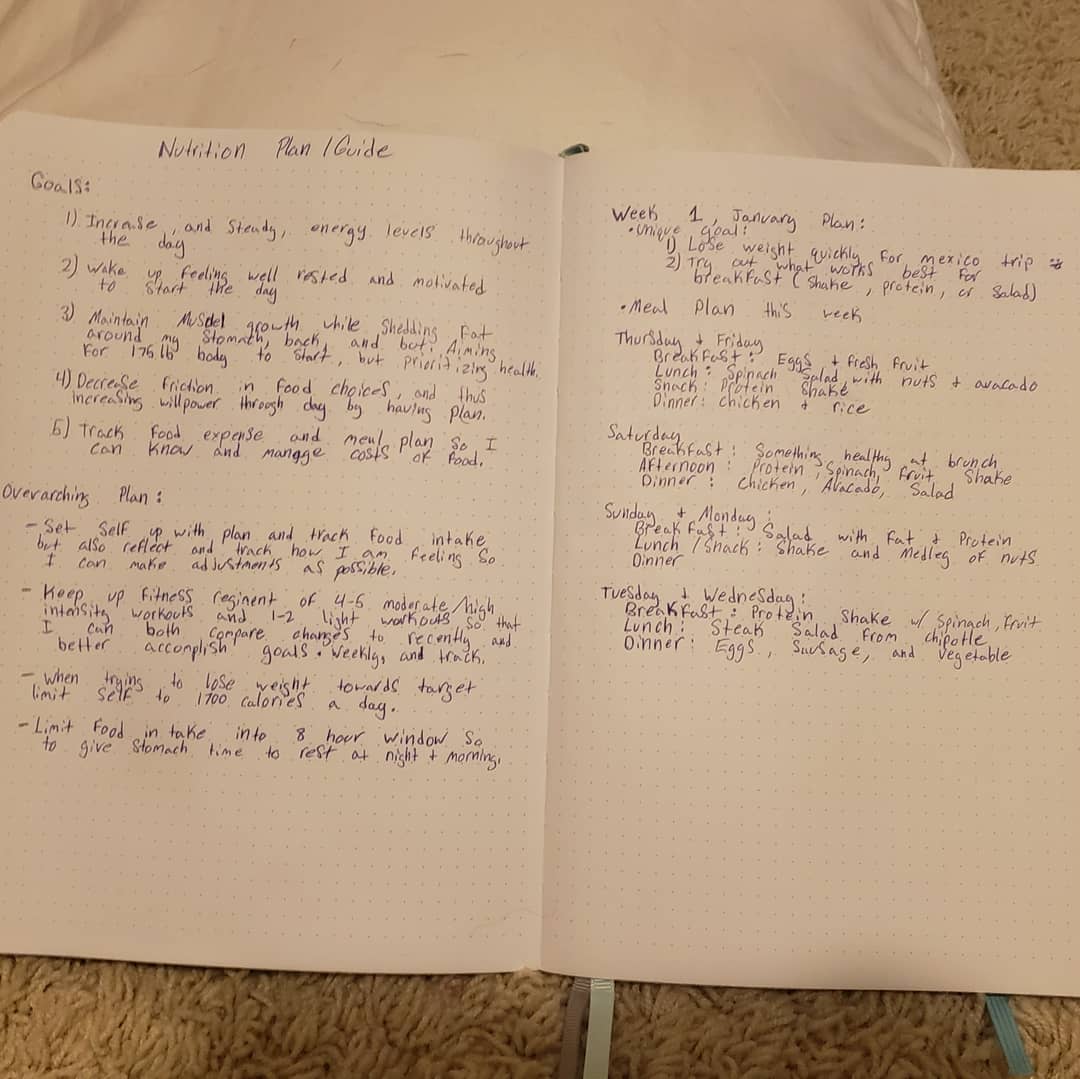 Nutrition Plan / Guide
Goals:
1) Increase, and steady, energy levels throughout
the day
2) Wake up feeling well rested and motivated
to start the day
3) Maintain growth while shedding fat
around my stomach, back, and butt. Aiming
For 175 lb body to start, but prioritizing health.
4) Decrease friction in food choices, and thus
increasing willpower through day by having plan.
5) Track food expense and meal plan so I
can know and manage costs of food.
Overarching Plan:
- Set self up with plan and track food intake
but also reflect and track how I am feeling so
I can make adjustments as possible.
- Keep up fitness reginent of 4-5 moderate/high
intensity workouts and 1-2 light workouts so that
I can both compare changes to recently and
better accomplish goals. Weekly, and track.
- When trying to lose weight towards target
limit self to 1700 calories a day.
- Limit food in take into 8 hour window so
to give stomach time to rest at night + morning.
Week 1, January Plan:
• Unique goal:
1) Lose weight quickly for mexico trip
2) Try out what works best for
breakfast (shake, protein, or salad)
• Meal Plan this week
Thursday + Friday
Breakfast: Eggs + fresh fruit
Lunch: Spinach Salad with nuts + avacado
Snack: Protein Shake
Dinner: chicken + rice
Saturday
Breakfast: Something healthy at brunch
Afternoon: Protein, Spinach, fruit Shake
Dinner: Chicken, Avacado, Salad
Sunday + Monday:
Breakfast: Salad with Fat + Protein
Lunch / Snack: Shake and Medley of nuts
Dinner
Tuesday + Wednesday:
Breakfast: Protein Shake w/ Spinach, fruit
Lunch: Steak Salad from chipotle
Dinner: Eggs, Sausage, and Vegetable